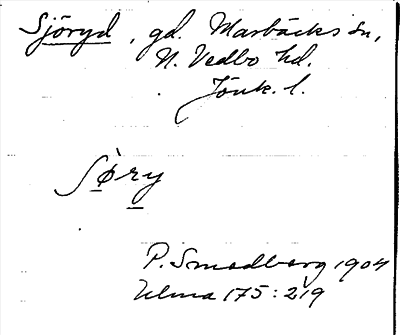 Sjöryd, gd. Marbäcks sn,
N. Vedbo hd.
Jönk. l.
Sø̀ry
P. Smedberg 1904
Ulma 175:219